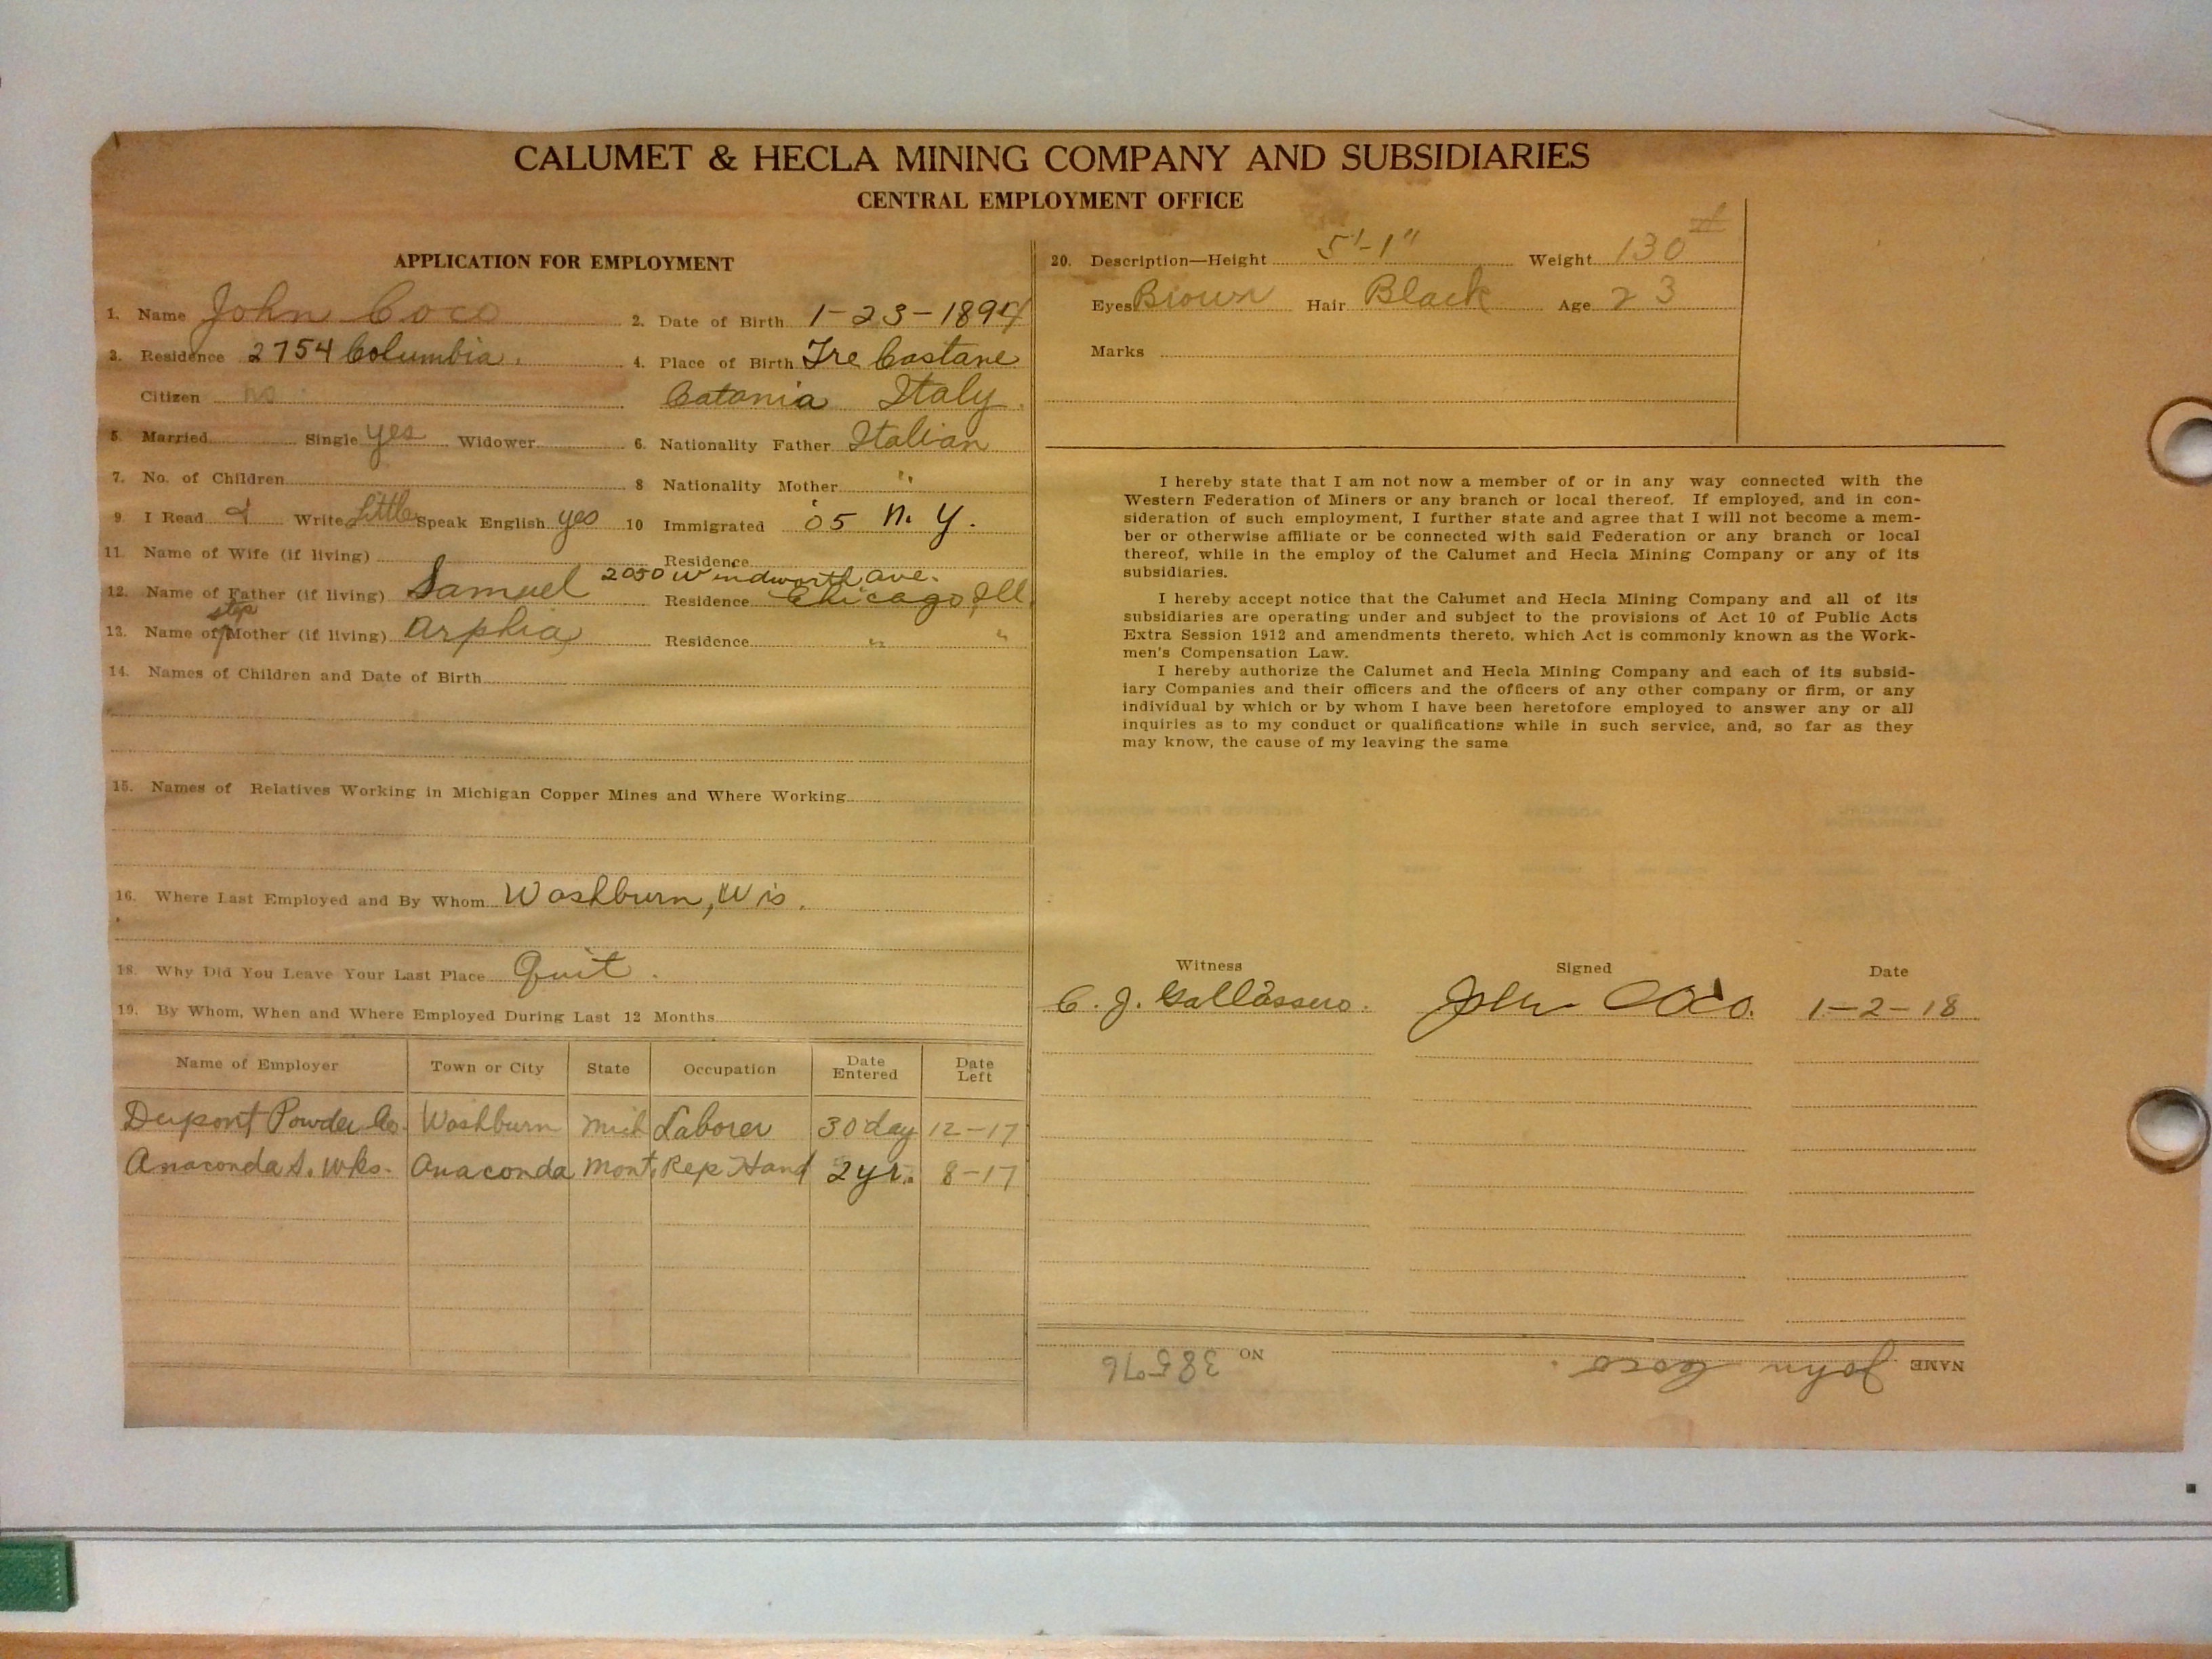 CALUMET & HECLA MINING COMPANY AND SUBSIDIARIES
CENTRAL EMPLOYMENT OFFICE
APPLICATION FOR EMPLOYMENT
1. Name John Coco 2. Date of Birth 1-23-1894
3. Residence 2754 Columbia. 4. Place of Birth Tre Castane
Citizen no Catania Italy.
5. Married Single yes Widower 6. Nationality Father Italian
7. No. of Children 8 Nationality Mother "
9. I Read & Write Little Speak English yes 10 Immigrated '05 N. Y.
11. Name of Wife (if living) Residence
2050 Windworth ave.
12. Name of Father (if living) Samuel Residence Chicago, Ill
step
13. Name of Mother (if living) Arphia Residence " "
14. Names of Children and Date of Birth
15. Names of Relatives Working in Michigan Copper Mines and Where Working
16. Where Last Employed and By Whom Washburn, Wis.
18. Why Did You Leave Your Last Place Quit.
19. By Whom, When and Where Employed During Last 12 Months
Name of Employer Town or City State Occupation Date Entered Date Left
Dupont Powder Co. Washburn Mich Laborer 30 day 12-17
Anaconda S. Wks. Anaconda Mont. Rep Hand 2 yr. 8-17
20. Description—Height 5'-1" Weight 130 #
Eyes Brown Hair Black Age 23
Marks
I hereby state that I am not now a member of or in any way connected with the
Western Federation of Miners or any branch or local thereof. If employed, and in con-
sideration of such employment, I further state and agree that I will not become a mem-
ber or otherwise affiliate or be connected with said Federation or any branch or local
thereof, while in the employ of the Calumet and Hecla Mining Company or any of its
subsidiaries.
I hereby accept notice that the Calumet and Hecla Mining Company and all of its
subsidiaries are operating under and subject to the provisions of Act 10 of Public Acts
Extra Session 1912 and amendments thereto, which Act is commonly known as the Work-
men's Compensation Law.
I hereby authorize the Calumet and Hecla Mining Company and each of its subsid-
iary Companies and their officers and the officers of any other company or firm, or any
individual by which or by whom I have been heretofore employed to answer any or all
inquiries as to my conduct or qualifications while in such service, and, so far as they
may know, the cause of my leaving the same
Witness Signed Date
C. J. Gallassero. John Coco. 1-2-18
NAME John Coco. NO 38596